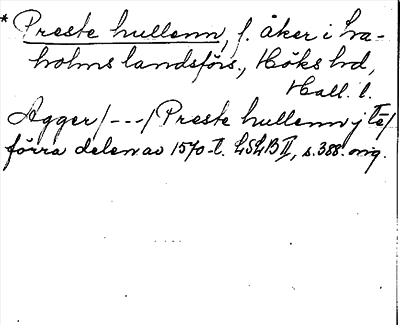 * Preste hullenn, f. åker i La-
holms landsförs., Höks hd,
Hall. l.
Agger/---/Preste hullenn j
förra delen av 1570-t. LSLB II, s. 388. orig.